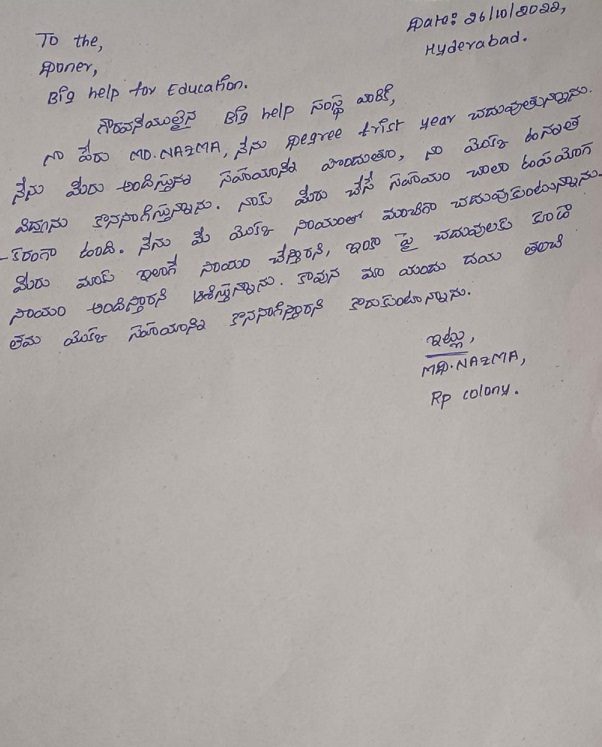 Date: 26/10/2022,
Hyderabad.
To the,
Doner,
Big help for Education.
గౌరవనీయులైన Big help సంస్థ వారికి,
నా పేరు MD. NAZMA, నేను Degree first year చదువుతున్నాను.
నేను మీరు అందిస్తున్న సహయాన్ని పొందుతూ, నా యొక్క ఉన్నత
విద్యాను కొనసాగిస్తున్నాను. నాకు మీరు చేసే సహయం చాలా ఉపయోగ
-కరంగా ఉంది. నేను మీ యొక్క సాయంతో మంచిగా చదువుకుంటున్నాను.
మీరు మాకు ఇలాగే సాయం చేస్తారని, ఇంకా పై చదువులకు కూడా
సాయం అందిస్తారని ఆశిస్తున్నాను. కావున మా యందు దయ తలచి
తమ యొక్క సహయాన్ని కొనసాగిస్తారని కోరుకుంటున్నాను.
ఇట్లు,
MD. NAZMA,
RP colony.